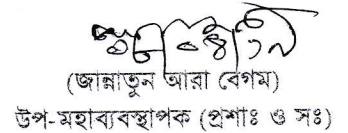 (জান্নাতুন আরা বেগম)
উপ-মহাব্যবস্থাপক (প্রশাঃ ও সঃ)